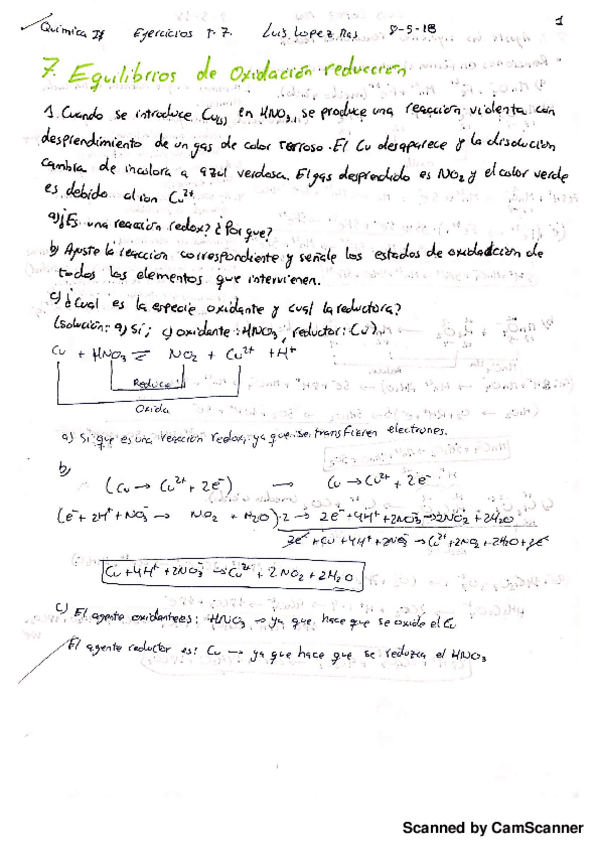 Química II Ejercicios T.7. Luis Lopez Ras 8-5-18 1
7. Equilibrios de oxidación reducción
1. Cuando se introduce Cu(s) en HNO3, se produce una reacción violenta con
desprendimiento de un gas de color terroso. El Cu desaparece y la disolución
cambia de incolora a azul verdosa. El gas desprendido es NO2 y el color verde
es debido al ion Cu2+
a) ¿Es una reacción redox? ¿Por que?
b) Ajuste la reacción correspondiente y señale los estados de oxidación de
todos los elementos que intervienen.
c) ¿Cual es la especie oxidante y cual la reductora?
(solución: a) Sí; c) oxidante: HNO3, reductor: Cu).
Cu + HNO3 ⇌ NO2 + Cu2+ + H+
Reduce
Oxida
a) Si que es una reacción redox, ya que se transfieren electrones.
b)
(Cu → Cu2+ + 2e-) → Cu → Cu2+ + 2e-
(e- + 2H+ + NO3- → NO2 + H2O)·2 → 2e- + 4H+ + 2NO3- → 2NO2 + 2H2O
2e- + Cu + 4H+ + 2NO3- → Cu2+ + 2NO2 + 2H2O + 2e-
Cu + 4H+ + 2NO3- → Cu2+ + 2NO2 + 2H2O
c) El agente oxidante es: HNO3 → ya que hace que se oxide el Cu
El agente reductor es: Cu → ya que hace que se reduzca el HNO3
Scanned by CamScanner